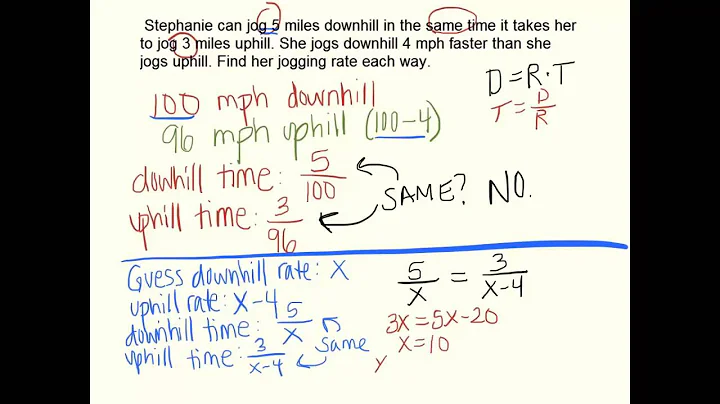 Stephanie can jog 5 miles downhill in the same time it takes her
to jog 3 miles uphill. She jogs downhill 4 mph faster than she
jogs uphill. Find her jogging rate each way.
D = R·T
T = D/R
100 mph downhill
96 mph uphill (100-4)
dowhill time: 5/100
uphill time: 3/96
SAME? NO.
Guess downhill rate: X
uphill rate: X-4
downhill time: 5/X
uphill time: 3/X-4
same
5/X = 3/X-4
3X = 5X-20
X=10